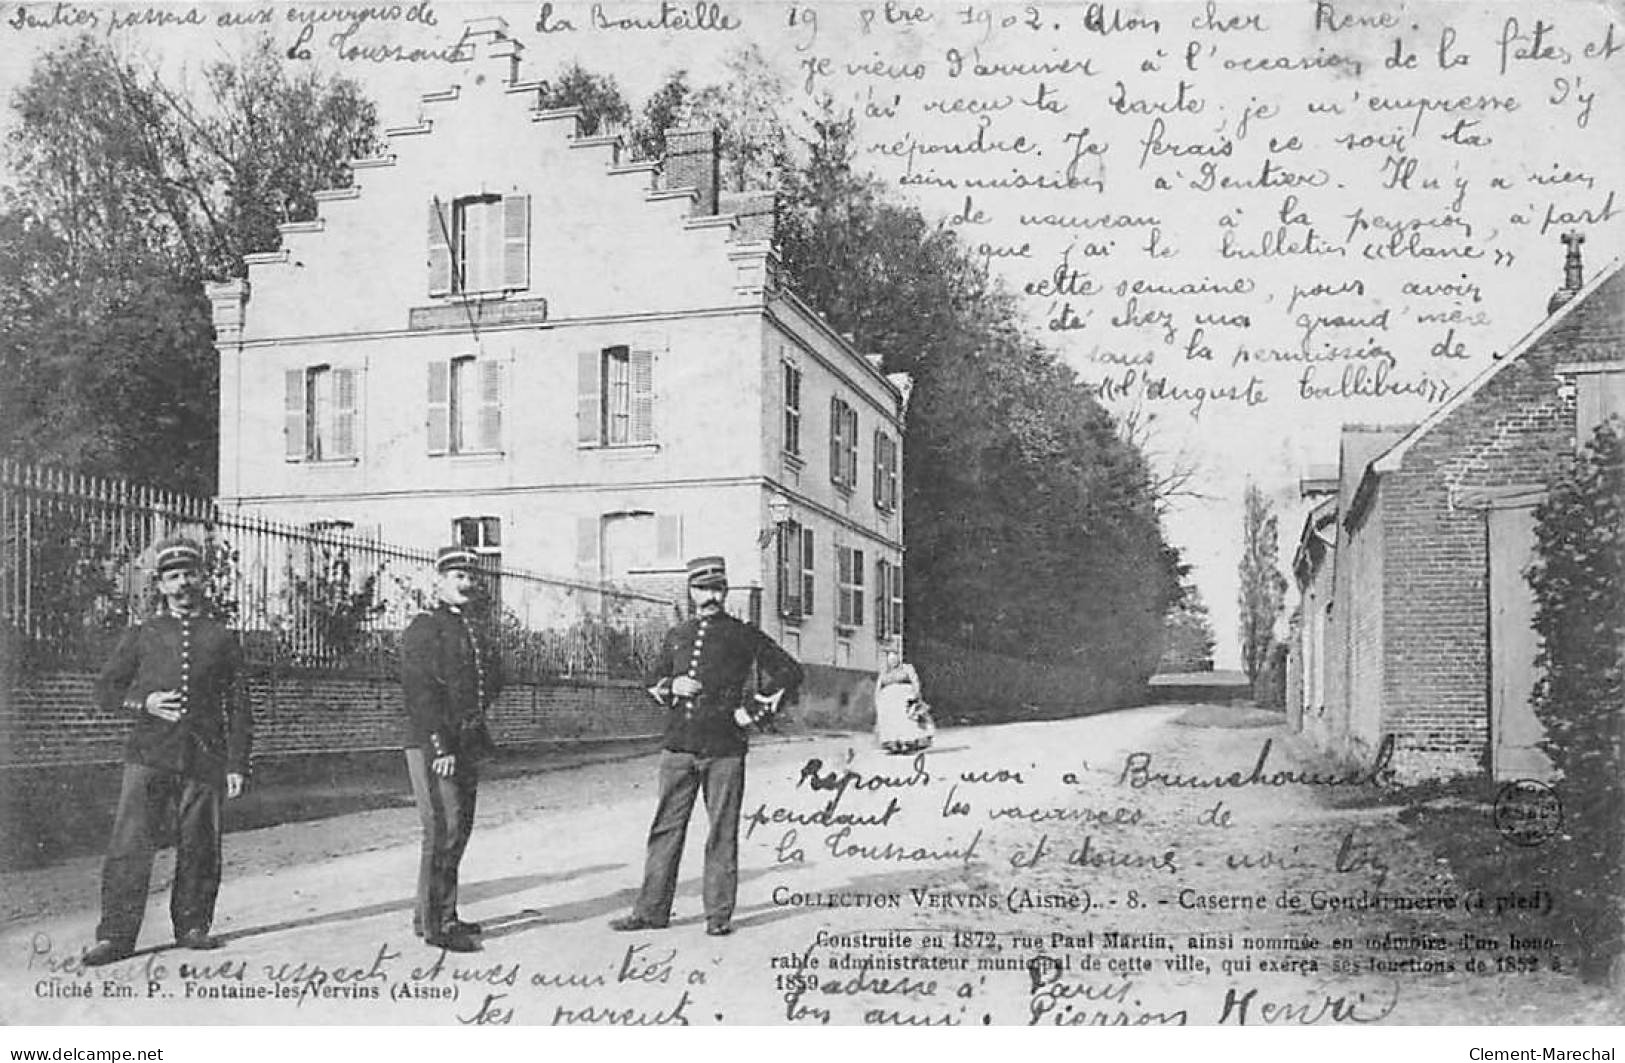 Dentier passera aux environs de
la Toussaint
La Bouteille 19 8bre 1902. Mon cher René.
Je viens d'arriver à l'occasion de la fête, et
j'ai reçu ta carte, je m'empresse d'y
répondre. Je ferais ce soir ta
commission à Dentier. Il n'y a rien
de nouveau à la pension, à part
que j'ai le bulletin «blanc»
cette semaine, pour avoir
été chez ma grand'mère
sans la permission de
«l'Auguste Cullibus»
Réponds-moi à
pendant les vacances de
la Toussaint et donne-moi ton
COLLECTION VERVINS (Aisne). - 8. - Caserne de Gendarmerie (à pied)
Construite en 1872, rue Paul Martin, ainsi nommée en mémoire d'un hono-
rable administrateur municipal de cette ville, qui exerça ses fonctions de 1852 à
1859
adresse à Paris.
Présente mes respects et mes amitiés à
Cliché Em. P.. Fontaine-les-Vervins (Aisne)
tes parents. Ton ami. Pierron Henri
delcampe.net
Clement-Marechal